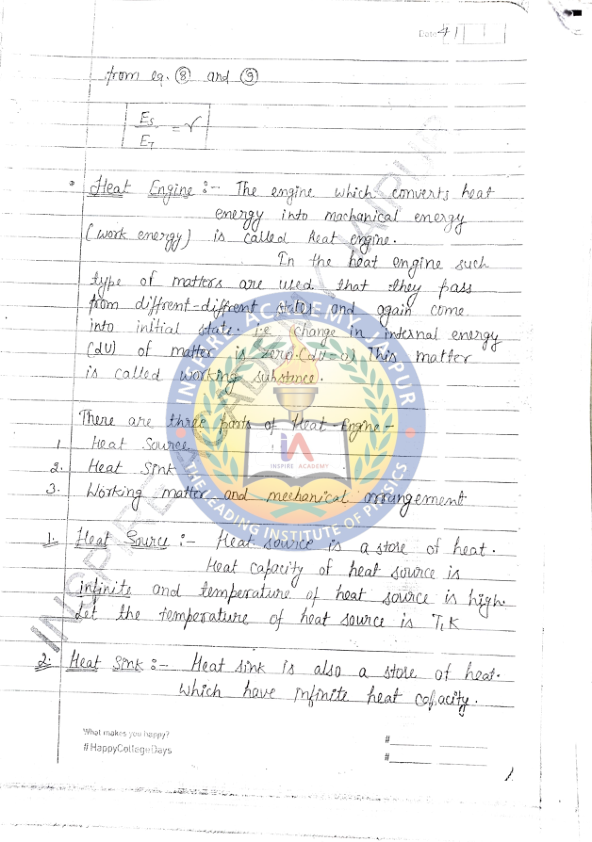 Date 41
from eq. ⑧ and ⑨
E_S / E_T = γ
Heat Engine :- The engine which converts heat
energy into machanical energy
(work energy) is called heat engine.
In the heat engine such
type of matters are used that they pass
from diffrent-diffrent states and again come
into initial state. i.e. change in internal energy
(dU) of matter is zero. (dU=0) This matter
is called working substance.
There are three parts of Heat-Engine-
1 Heat Source
2. Heat Sink
3. Working matter and mechanical arrangement
1. Heat Source :- Heat source is a store of heat.
Heat capacity of heat source is
infinite and temperature of heat source is high.
Let the temperature of heat source is T₁K
2. Heat Sink :- Heat sink is also a store of heat.
which have infinite heat capacity.
What makes you happy?
#HappyCollegeDays
#
#
INSPIRE ACADEMY JAIPUR
INSPIRE ACADEMY, JAIPUR
iA
INSPIRE ACADEMY
THE LEADING INSTITUTE OF PHYSICS